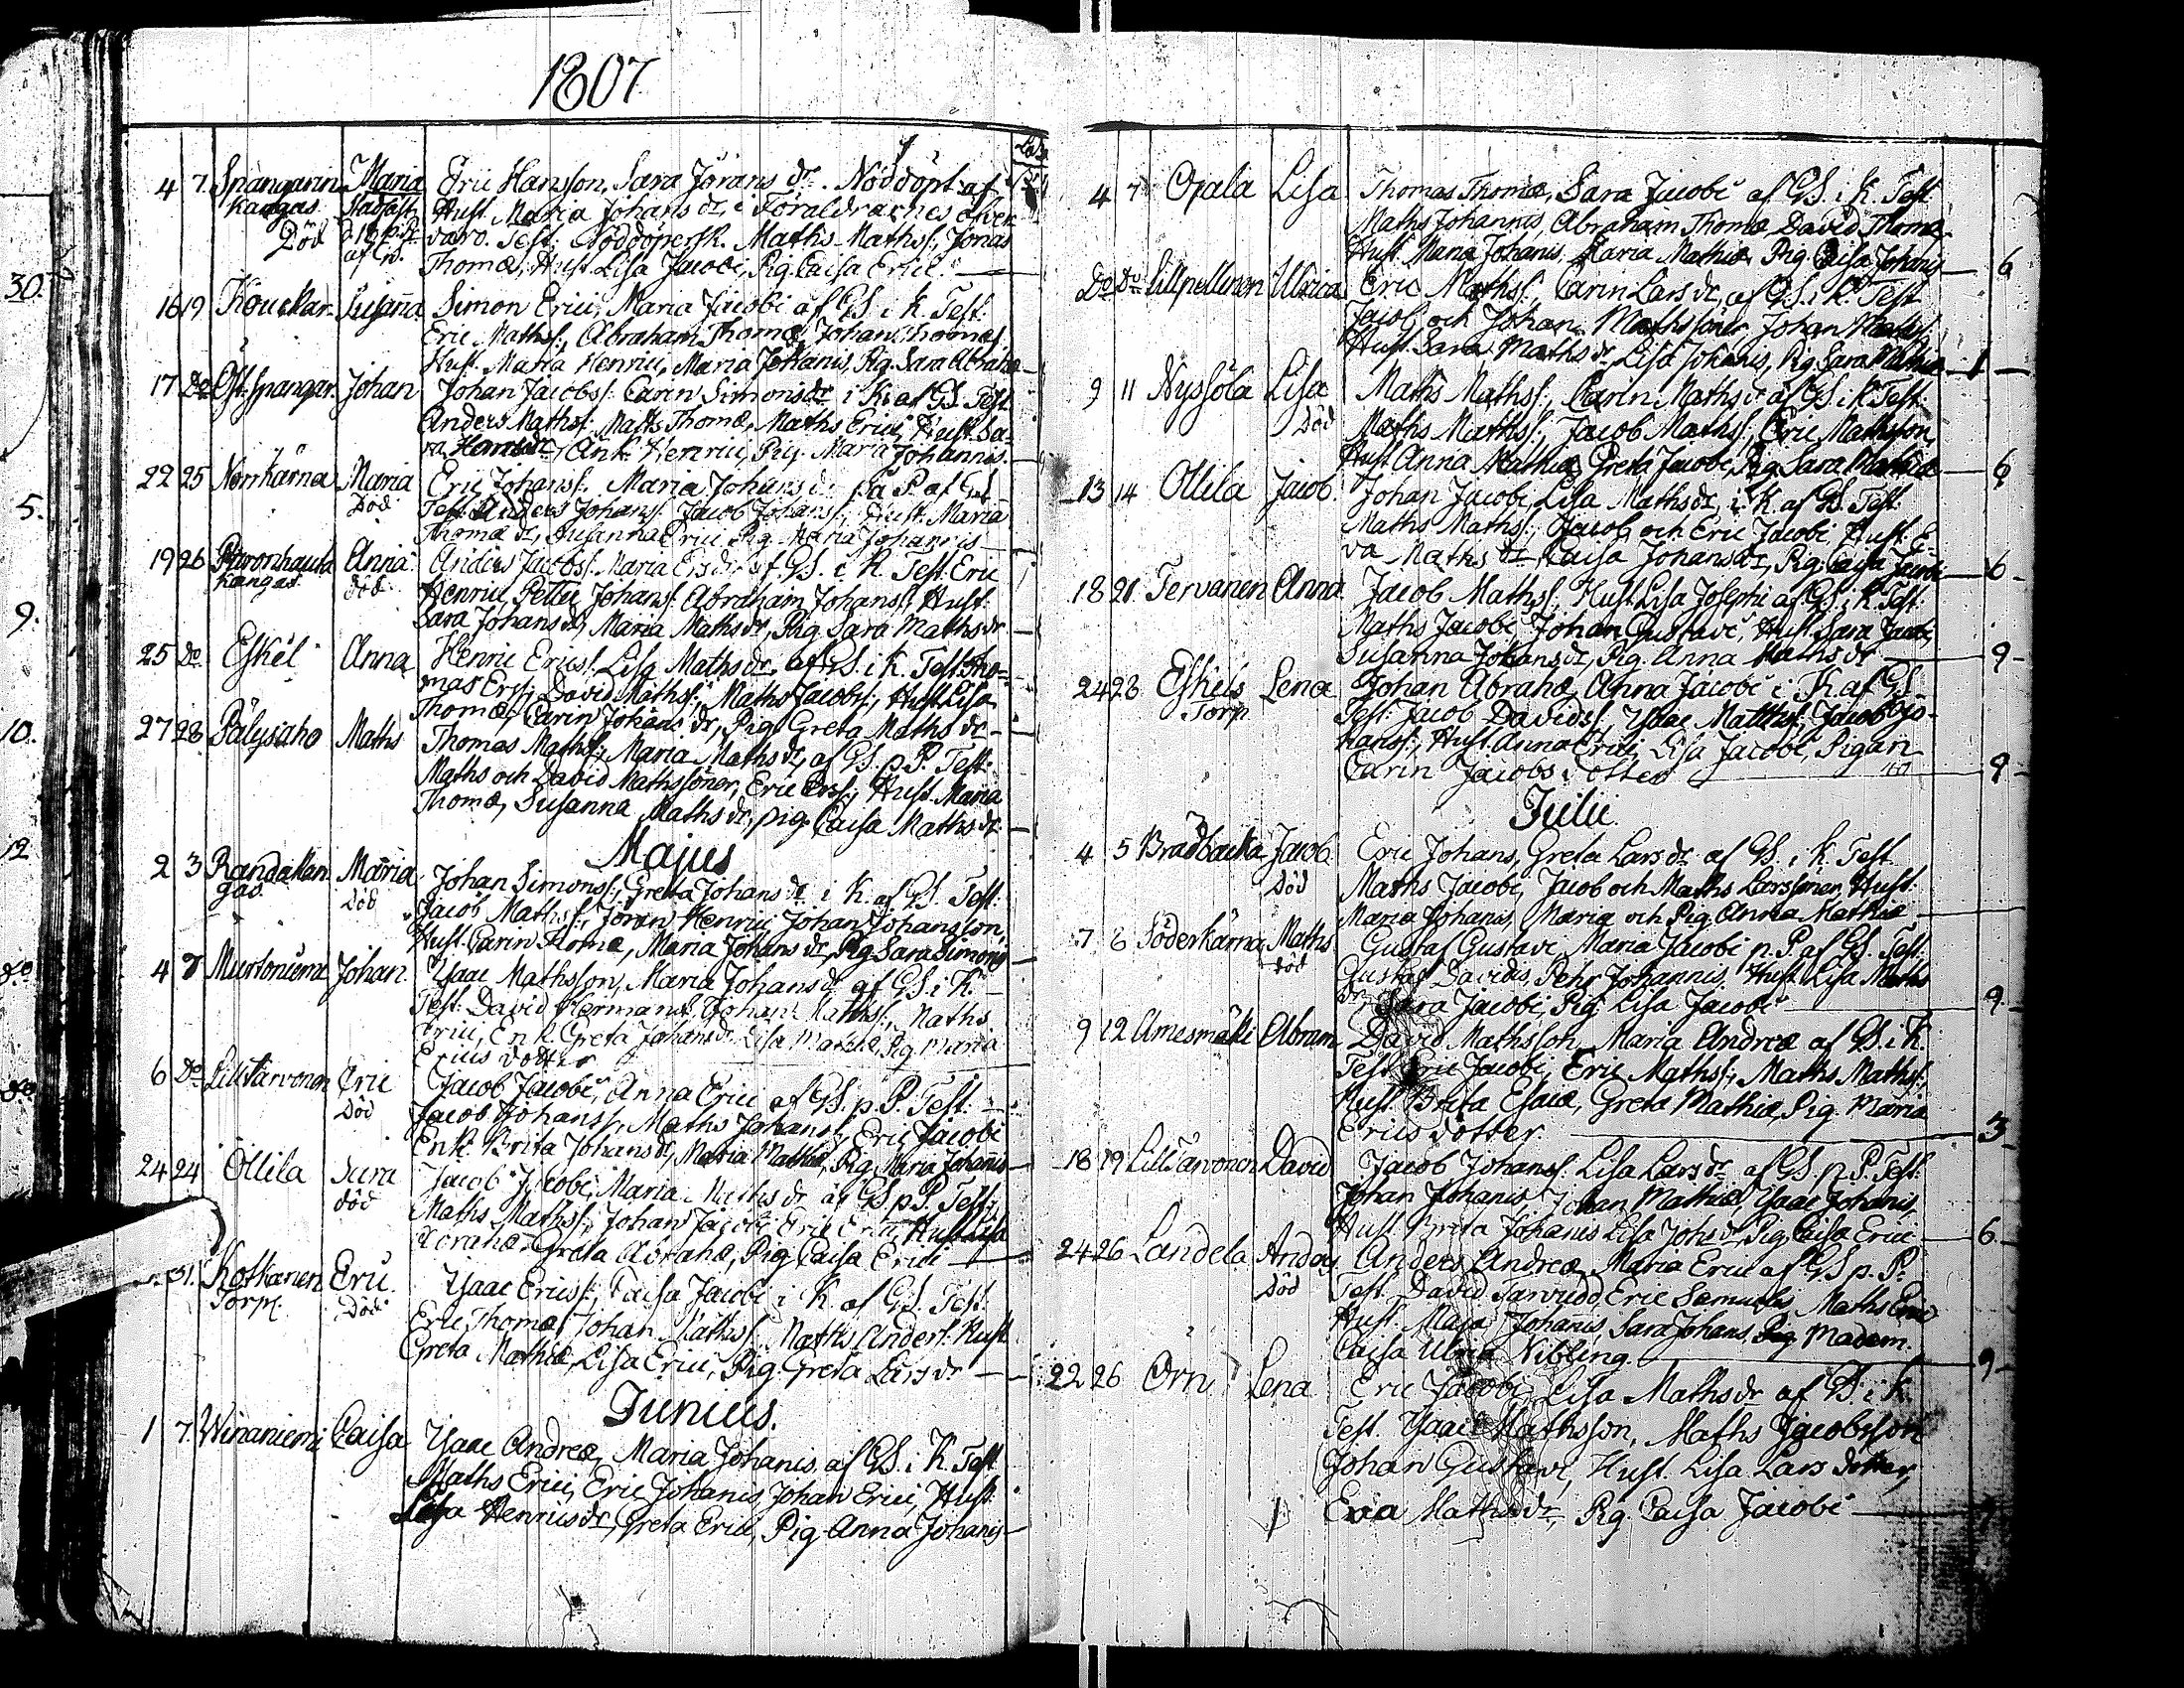 1807
4 7. Spångarin Maria Eric Hansson, Sara Jörans dr. Nöddöpt af
kangas Hust. Maria Johans dr, i Föräldrarnes öfver
Död varo. Test: Nöddöpersk. Maths Mathss., Jonas
Thomæ, Hust. Lisa Jacobi, Pig. Caisa Erici.
16 19 Kouckar Susanna Simon Erici, Maria Jacobi af GS. i K. Test:
Eric Mathss., Abraham Thomæ, Johan Thomæ.
Hust. Maria Henrici, Maria Johanis, Pig. Sara Abrahæ
17 Do Öst. Spangar Johan Johan Jacobss. Carin Simons dr i K. af GS. Test.
Anders Mathss., Matts Thomæ, Maths Erici, Hust. Sa-
ra Hans dr, Änk. Henrici, Pig. Maria Johannis.
22 25 Norrkärna Maria Eric Johanss., Maria Johans dr på P. af GS.
Död Test: Anders Johanss. Jacob Johanss., Hust. Maria
Thomæ dr, Susanna Erici Pig. Maria Johannis
19 26 Anna Anders Jacobss. Maria Ersdr af GS. i K. Test: Eric
kangas död Henrici, Petter Johanss. Abraham Johanss., Hust.
Sara Johans dr, Maria Maths dr, Pig. Sara Maths dr
25 Do Eskel Anna Henric Ericss. Lisa Maths dr af GS. i K. Test. Tho-
mas Erss., David Mathss., Maths Jacobss., Hust. Lisa
Thomæ, Carin Johans dr, Pig. Greta Maths dr
27 28 Pälysaho Maths Thomas Mathss., Maria Maths dr, af GS. p. P. Test:
Maths och David Mathssöner, Eric Erss., Hust. Maria
Thomæ, Susanna Maths dr, pig. Caisa Maths dr
Majus
2 3 Randakan Maria Johan Simonss., Greta Johans dr i K. af GS. Test:
gas död Jacob Mathss., Jöran Henrici, Johan Johansson,
Hust. Carin Thomæ, Maria Johans dr, Pig. Sara Simonis
4 7 Murtoniemi Johan Ysaac Mathsson, Maria Johans dr af GS. i K.
Test. David Hermanss. Johan Mathss., Maths
Erici, Enk. Greta Johans dr Lisa Mathiæ, Pig. Maria
Erics dotter
6 Do Lill Tarvonen Eric Jacob Jacobi, Anna Erici af GS. p. P. Test:
Död Jacob Johanss., Maths Johanss., Eric Jacobi
Enk. Brita Johans dr, Maria Mathiæ, Pig. Maria Johanis
24 24 Ollila Sara Jacob Jacobi, Maria Maths dr af GS. p. P. Test:
död Maths Mathss., Johan Jacobi Hust. Lisa
Abrahæ, Greta Abrahæ, Pig. Caisa Erici
31. Kotkanen Eric Ysaac Ericss., Caisa Jacobi i K. af GS. Test.
Torp. Död Eric Thomæ, Johan Mathss., Maths Anderss. Hust.
Greta Mathiæ, Lisa Erici, Pig. Greta Lars dr
Junius.
1 7. Winaniemi Caisa Ysaac Andreæ, Maria Johanis af GS. i K. Test
Maths Erici, Eric Johanis, Johan Erici, Hust:
Lisa Henrics dr, Greta Erici, Pig. Anna Johanis
4 7 Ojala Lisa Thomas Thomæ, Sara Jacobi af GS. i K. Test:
Maths Johannis, Abraham Thomæ, David Thomæ.
Hust. Maria Johanis, Maria Mathiæ Pig. Caisa Johanis 6
Do Do Lillpellinen Ulrica Eric Mathss., Carin Lars dr, af GS. i K. Test
Jacob och Johan Mathssöner, Johan Mathss.
Hust. Sara Maths dr, Lisa Johanis, Pig. Sara Mathiæ 1
9 11 Nyssölä Lisa Maths Mathss., Carin Maths dr af GS. i K. Test:
Död Maths Mathss., Jacob Mathss., Eric Mathsson,
Hust. Anna Mathiæ, Greta Jacobi, Pig. Sara Mathiæ 6
13 14 Ollila Jacob Johan Jacobi, Lisa Maths dr, i K. af GS. Test:
Maths Mathss., Jacob och Eric Jacobi, Hust. E-
va Maths dr, Caisa Johans dr, Pig. Caisa Jacobi 6
18 21. Tervanen Anna Jacob Mathss. Hust. Lisa Josephi af GS. i K. Test:
Maths Jacobi, Johan Gustavi, Hust. Sara Jacobi,
Susanna Johans dr, Pig. Anna Maths dr 9
24 28 Eskels Lena Johan Abrahæ, Anna Jacobi i K. af GS.
Torp Test: Jacob Davidss., Ysaac Mathss., Jacob Jo-
hanss., Hust. Anna Erici, Lisa Jacobi, Pigan
Carin Jacobs dotter 9
Julii.
4 5 Brådbacka Jacob Eric Johans, Greta Lars dr af GS. i K. Test
Död Maths Jacobi, Jacob och Maths Larssöner, Hust:
Maria Johanis, Maria och Pig. Anna Mathiæ
7 8 Söderkärna Maths Gustaf Gustavi Maria Jacobi p. P. af GS. Test:
död Gustaf Davidis, Pehr Johannis, Hust. Lisa Maths
dr, Sara Jacobi, Pig. Lisa Jacobi 9
9 12 Amesmäki Abram David Mathsson, Maria Andreæ af GS. i K.
Test Eric Jacobi, Eric Mathss., Maths Mathss.,
Hust. Brita Esaiæ, Greta Mathiæ, Pig. Maria
Erics dotter. 3
18 19 Lill Tarvonen David Jacob Johanss. Lisa Lars dr af GS. p. P. Test:
Johan Johanis, Johan Mathiæ, Ysaac Johanis,
Hust. Brita Johanis Lisa Johs dr, Pig. Caisa Erici 6
24 26 Landela Anders Anders Andreæ, Maria Erici af GS p. P.
Död Test. David Tarvudd, Eric Samuelis, Maths Erici
Hust. Maja Johanis, Sara Johans, Pig. Madem.
Caisa Ulrica Nibling. 9
22 26 Orn Lena Eric Jacobi, Lisa Maths dr af GS. i K.
Test. Ysaac Mathsson, Maths Jacobsson
Johan Gustavi, Hust. Lisa Lars dotter,
Eva Maths dr, Pig. Caisa Jacobi